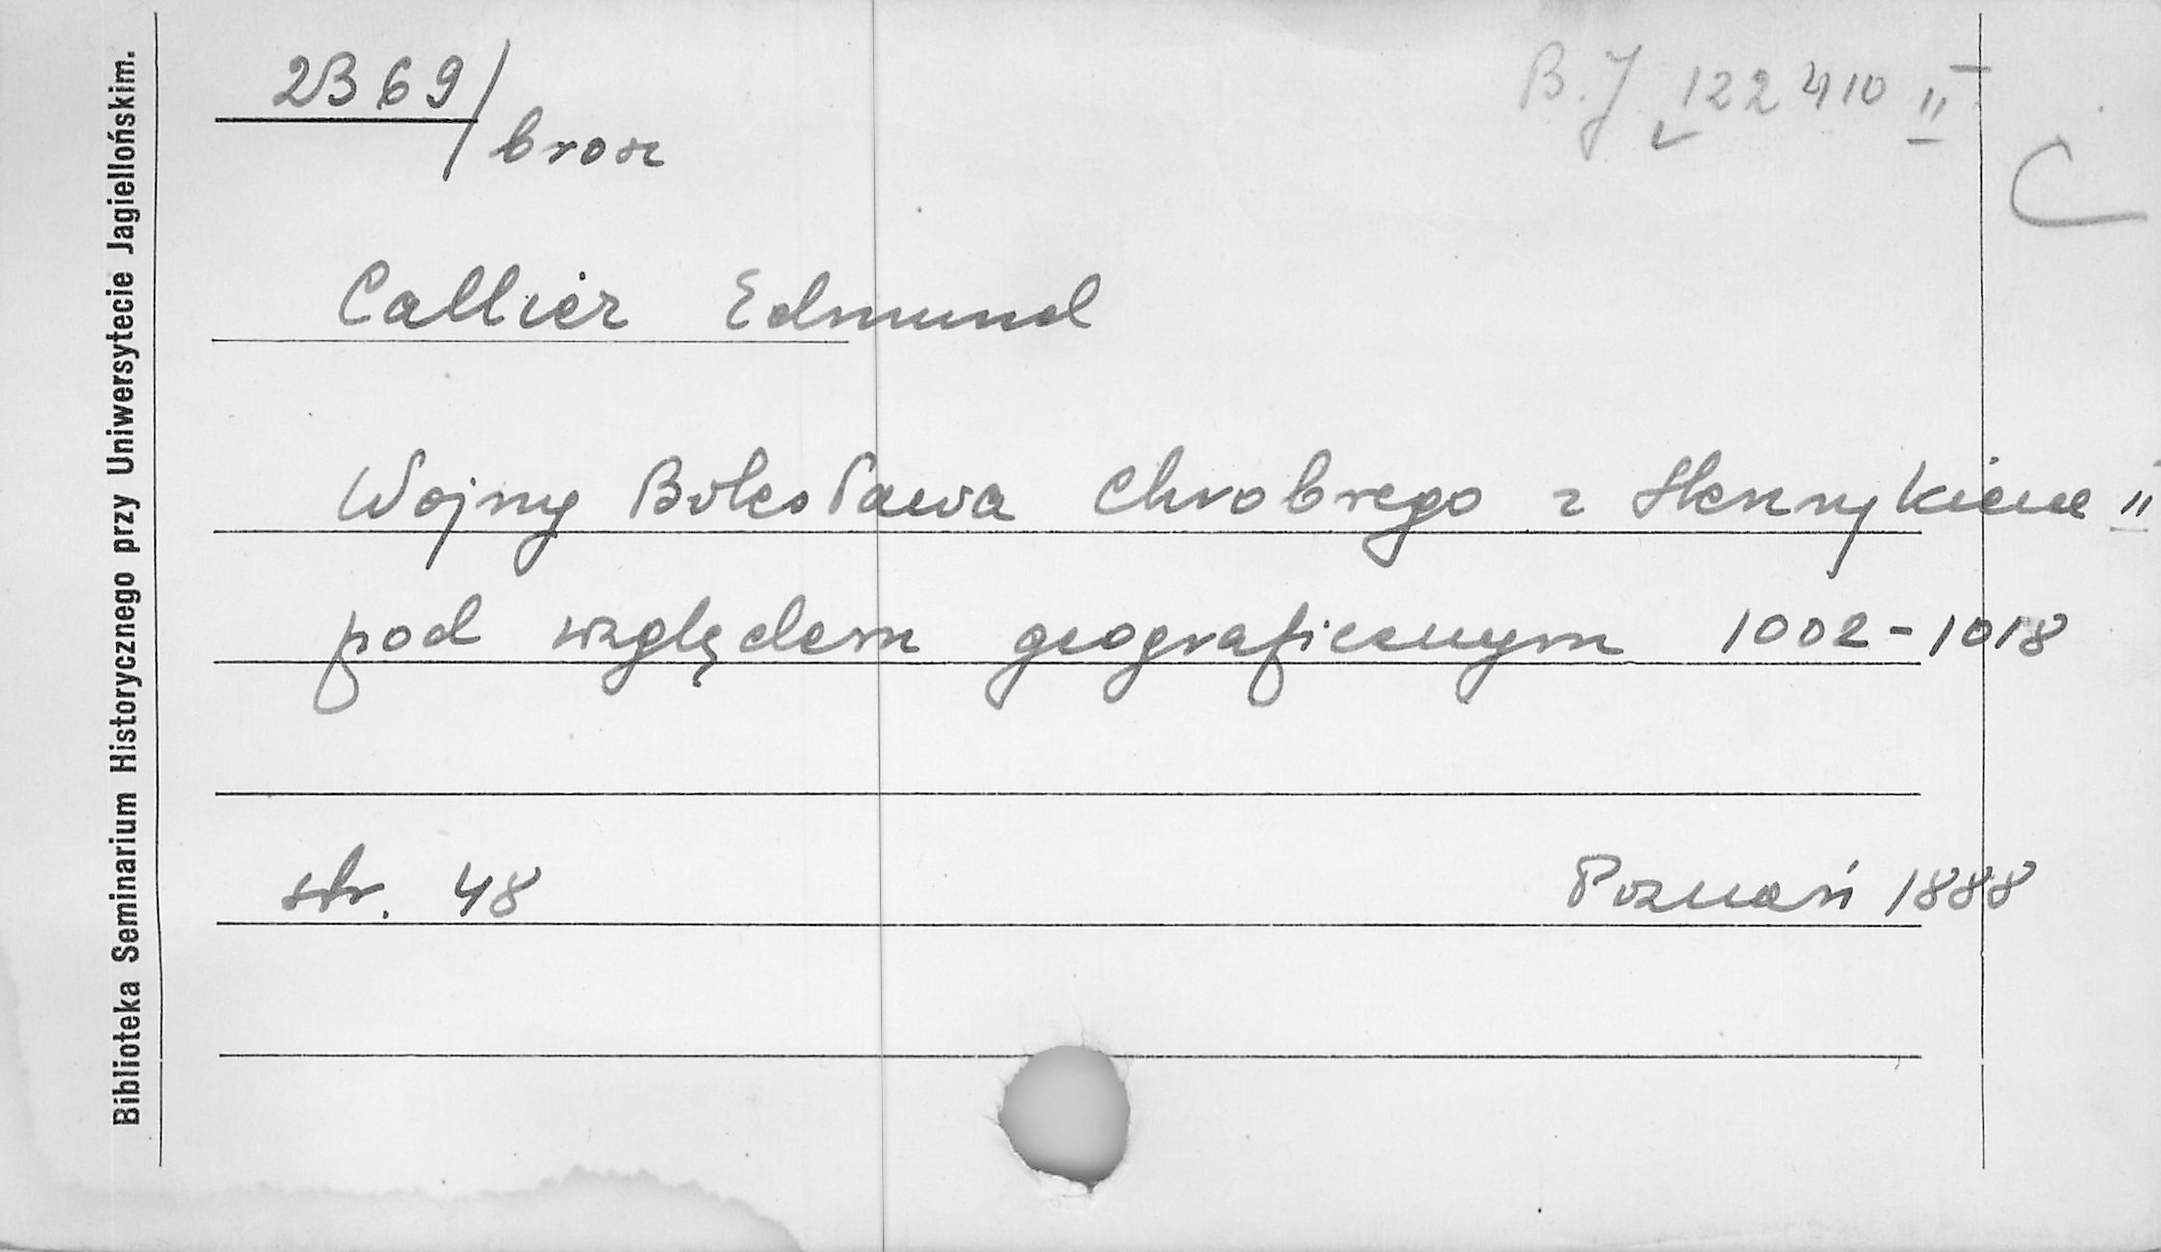 2369/brosz
B.J 122410 II
C
Callier Edmund
Wojny Bolesława Chrobrego z Henrykiem II
pod względem geograficznym 1002-1018
str. 48
Poznań 1888
Biblioteka Seminarium Historycznego przy Uniwersytecie Jagiellońskim.